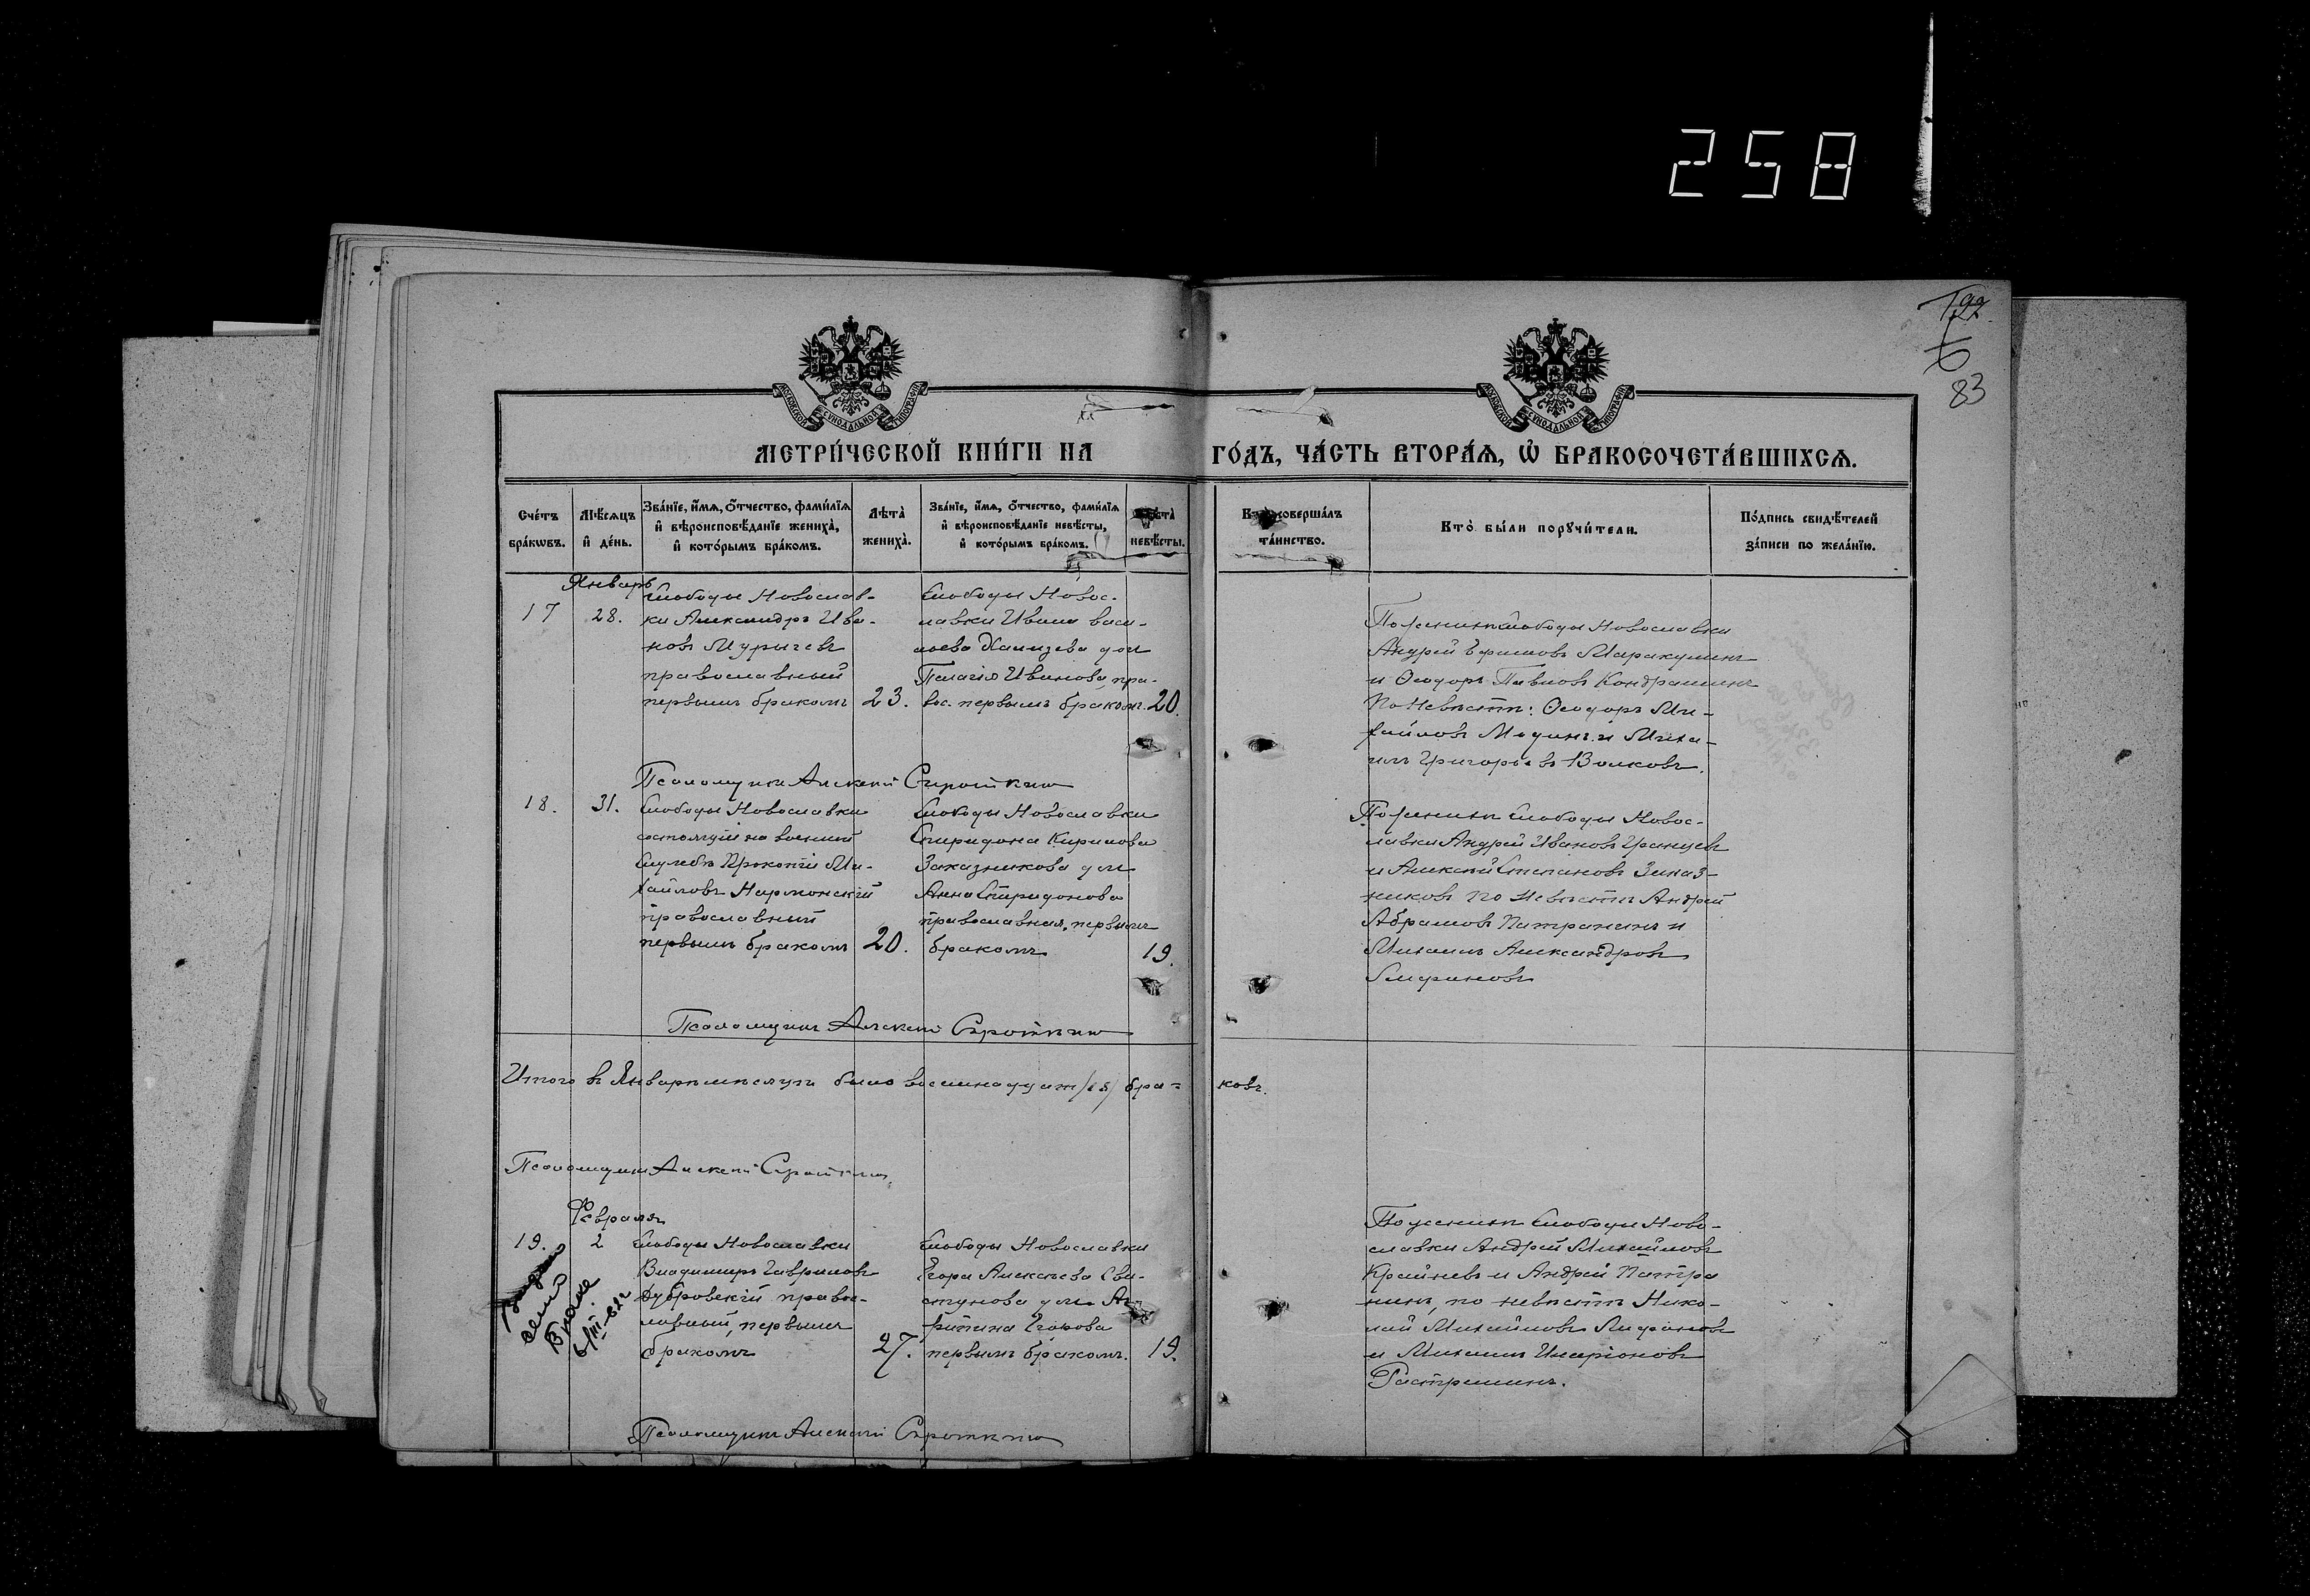 258
92
6
83
МОСКОВСКОЙ СУНОДАЛЬНОЙ ТИПОГРАФІИ
МОСКОВСКОЙ СУНОДАЛЬНОЙ ТИПОГРАФІИ
МЕТРИ́ЧЕСКОЙ КНИ́ГИ НА ГО́ДЪ, ЧА́СТЬ ВТОРА́Я, Ѡ҆ БРАКОСОЧЕТА́ВШИХСЯ.
Сче́тъ бра́кѡвъ.
Мѣ́сяцъ и҆ де́нь.
Зва́нїе, и҆́мя, ѻ҆́тчество, фами́лїя и҆ вѣроисповѣ́данїе жениха̀, и҆ кото́рымъ бра́комъ.
Лѣта̀ жениха̀.
Зва́нїе, и҆́мя, ѻ҆́тчество, фами́лїя и҆ вѣроисповѣ́данїе невѣ́сты, и҆ кото́рымъ бра́комъ.
Лѣта̀ невѣ́сты.
Кто̀ соверша́лъ та́инство.
Кто̀ бы́ли порꙋчи́тели.
По́дпись свидѣ́телей за́писи по жела́нїю.
Январь
17
28.
Слободы Новослав-
ки Александръ Ива-
новъ Мурычевъ
православный
первымъ бракомъ
23.
Слободы Новос-
лавки Ивана Васи-
льева дом
Пелагія Иванова, пра-
вос. первымъ бракомъ.
20.
По женихѣ слободы Новославки
Андрей Ефимовъ Маракулинъ
и Ѳеодоръ Павловъ Кондрашинъ
По Невѣстѣ: Ѳеодоръ Ми-
хайловъ и Миха-
илъ Григорьевъ Волковъ.
Псаломщикъ Алексѣй Сироткинъ
18.
31.
Слободы Новославки
состоящій на военной
службѣ Прокопій Ми-
хайловъ Нармонскій
православный
первымъ бракомъ
20.
Слободы Новославки
Спиридона Кирилова
Заказникова дом
Анна Спиридонова
православная, первымъ
бракомъ
19.
По женихѣ слободы Новос-
лавки Андрей Ивановъ
и Алексѣй Степановъ Заказ-
никовъ по Невѣстѣ Андрей
Абрамовъ Патранинъ и
Михаилъ Александровъ
Псаломщикъ Алексѣй Сироткинъ
Итого въ Январѣ мѣсяцѣ было восемнадцат /18/ бра= ковъ.
Псаломщикъ Алексѣй Сироткинъ
Февраль
19.
2
Слободы Новославки
Владимиръ Гавриловъ
Дубровскій правос-
лавный, первымъ
бракомъ
27.
Слободы Новославки
Егора Алексѣева Сви-
стунова дом Аг-
рипина Егорова
первымъ бракомъ.
19.
По женихѣ слободы Ново-
славки Андрей Михайловъ
Крайневъ и Андрей Патра
нинъ, по невѣстѣ Нико-
лай Михайловъ
и Михаилъ Иларіоновъ
Растрешинъ.
Псаломщикъ Алексѣй Сироткинъ